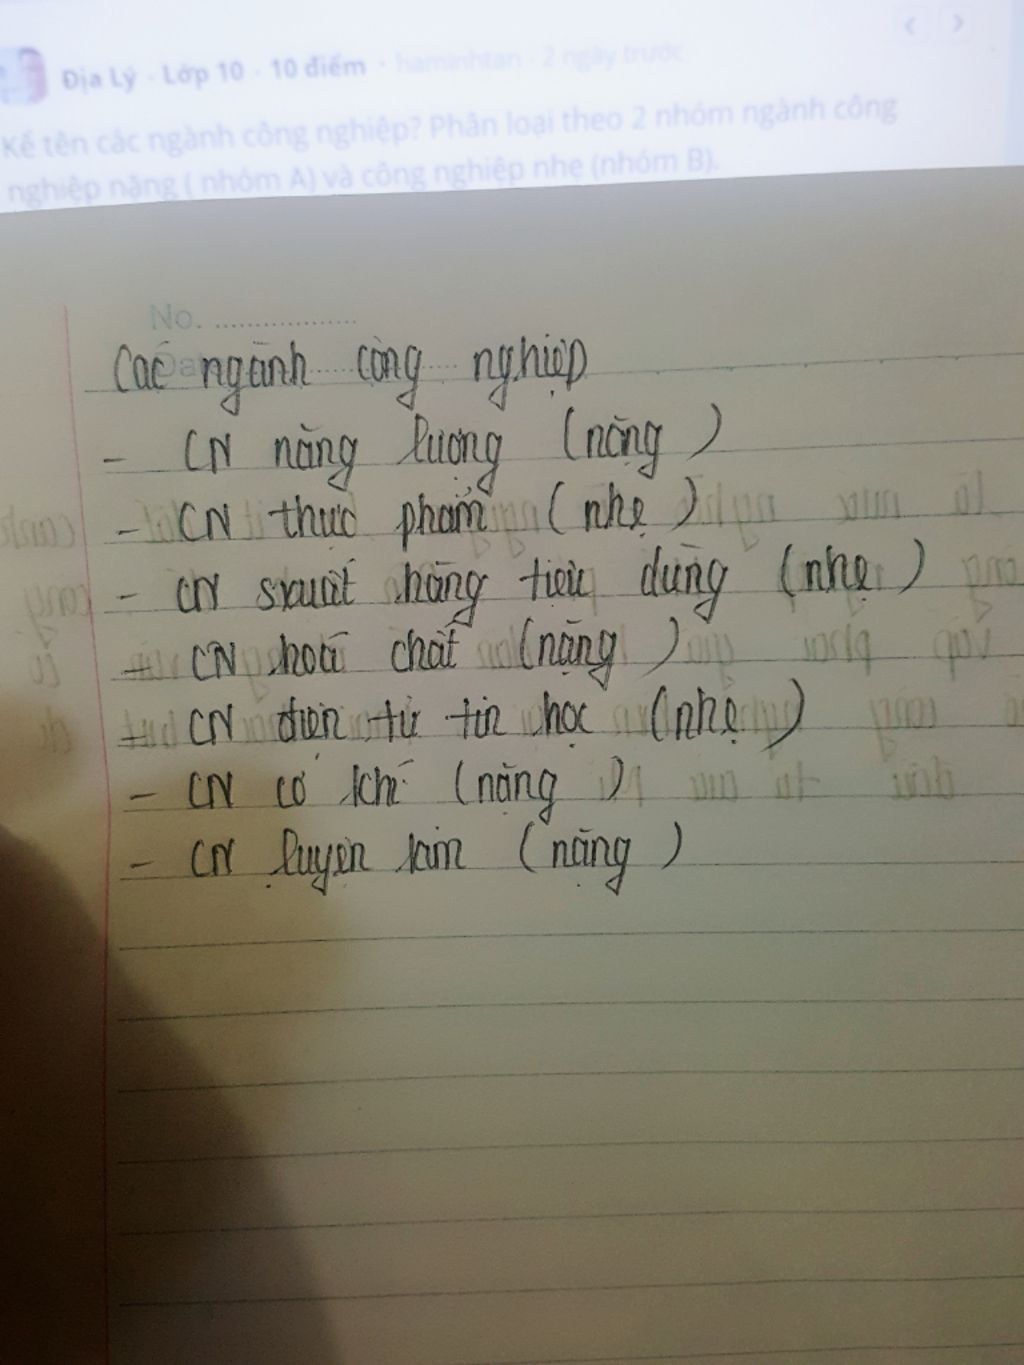 Địa Lý · Lớp 10 · 10 điểm · haminhtan · 2 ngày trước
Kể tên các ngành công nghiệp? Phân loại theo 2 nhóm ngành công
nghiệp nặng ( nhóm A) và công nghiệp nhẹ (nhóm B).
No.
Các ngành công nghiệp
- CN năng lượng (nặng)
- CN thực phẩm (nhẹ)
- CN sxuất hàng tiêu dùng (nhẹ)
- CN hoá chất (nặng)
- CN điện tử tin học (nhẹ)
- CN cơ khí (nặng)
- CN luyện kim (nặng)